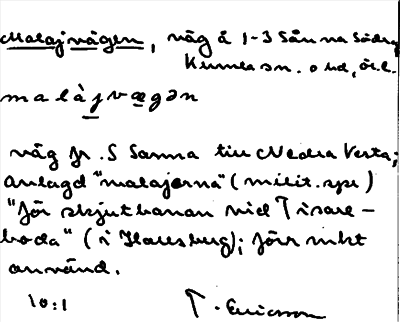 Malajvägen, väg å 1-3 Sånna Södra
Kumla sn. o hd, Ör.l.
malàjvægən
väg fr. S Sanna till Nedra Vesta;
anlagd "malajerna" (milit.spr)
"för skjutbanan vid Tisare-
boda" (i Hallsberg); förr mkt
använd.
10:1
T. Ericsson